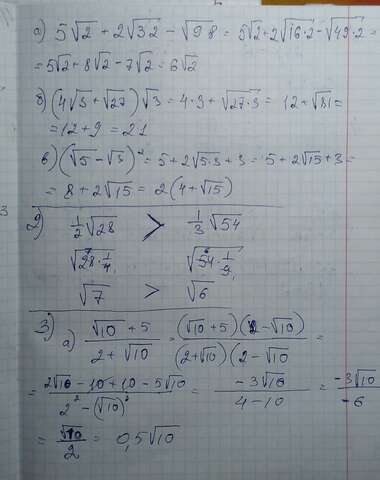 а) 5√2 + 2√32 - √98 = 5√2 + 2√16·2 - √49·2 =
= 5√2 + 8√2 - 7√2 = 6√2
б) (4√3 + √27) √3 = 4·3 + √27·3 = 12 + √81 =
= 12 + 9 = 21
в) (√5 - √3)² = 5 + 2√5·3 + 3 = 5 + 2√15 + 3 =
= 8 + 2√15 = 2(4 + √15)
2) 1/2 √28 > 1/3 √54
√28·1/4 √54·1/9
√7 > √6
3) а) (√10 + 5)/(2 + √10) = (√10 + 5)(2 - √10)/(2 + √10)(2 - √10 =
= (2√10 - 10 + 10 - 5√10)/(2² - (√10)²) = (-3√10)/(4 - 10) = (-3√10)/(-6)
= √10/2 = 0,5√10